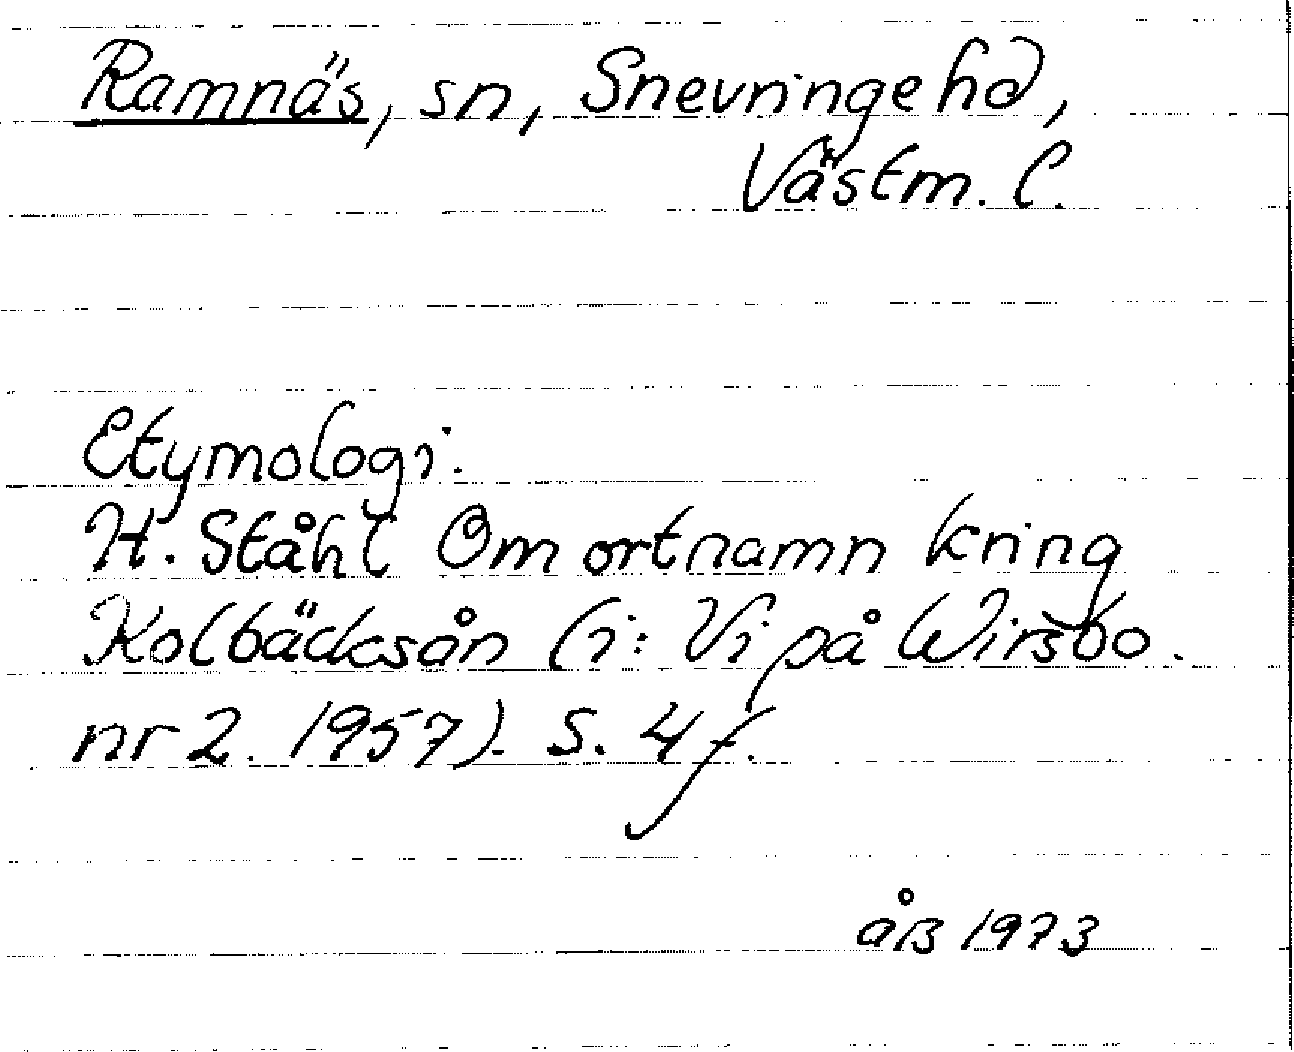 Ramnäs, sn, Snevringe hd,
Västm. l.
Etymologi.
H. Ståhl Om ortnamn kring
Kolbäcksån (i: Vi på Wirsbo.
nr 2. 1957). S. 4 f.
åB 1973